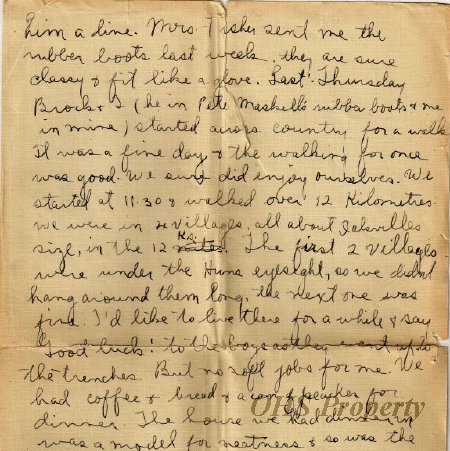 him a line. Mrs. Fisher sent me the
rubber boots last week, they are sure
classy & fit like a glove. Last Thursday
Brock & I (he in Pete Maskell's rubber boots & me
in mine) started across country for a walk
It was a fine day, & the walking for once
was good. We sure did enjoy ourselves. We
started at 11.30 & walked over 12 Kilometres
we were in 4 villages, all about Oakvilles
size, in the 12 miles Ks. The first 2 villages
were under the Huns eyesight, so we didn't
hang around them long, the next one was
fine. I'd like to live there for a while & say
"Good luck!" to the boys as they went up to
the trenches. But no soft jobs for me. We
had coffee & bread & a can of peaches for
dinner. The house we had dinner in
was a model for neatness & so was the
OHS Property